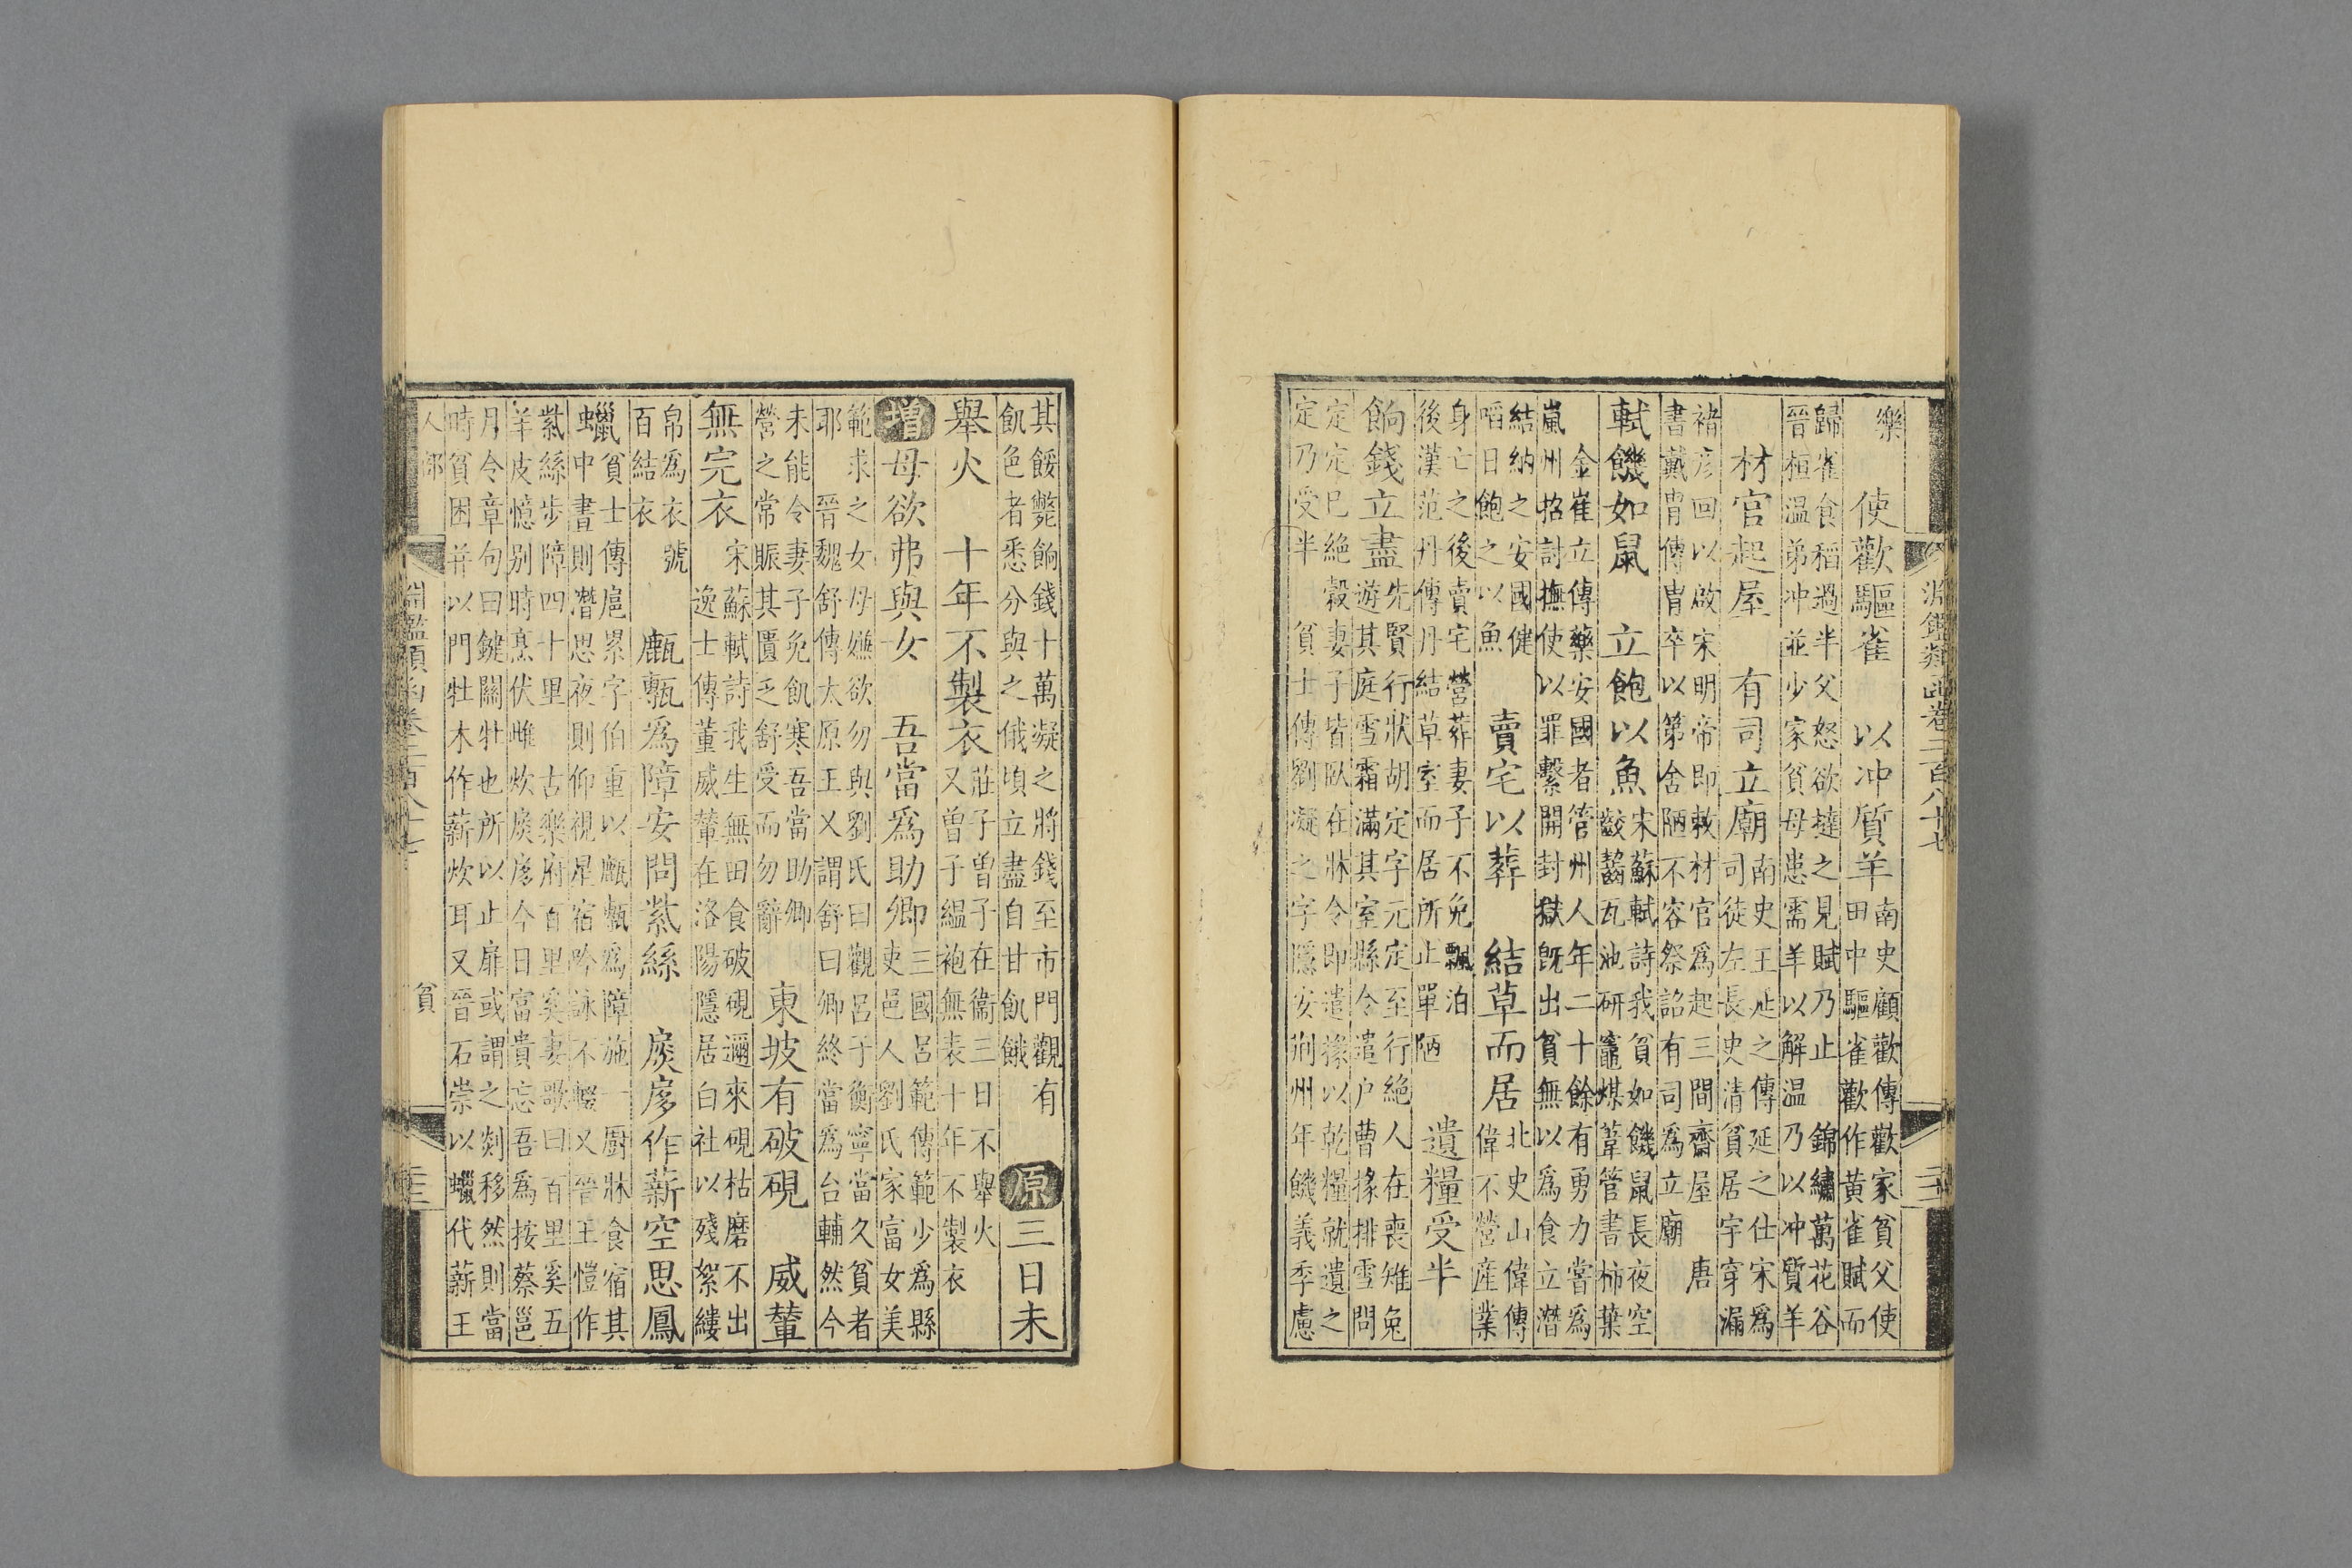 淵鑑類函卷二百八十七
樂
使歡驅雀 以冲質羊
南史顧歡傳歡家貧父使
田中驅雀歡作黃雀賦而
歸雀食稻過半父怒欲撻之見賦乃止 錦繡萬花谷
晉桓温弟冲並少家貧母患需羊以解温乃以冲質羊
材官起屋 有司立廟
南史王延之傳延之仕宋爲
司徒左長史清貧居宇穿漏
褚彦回以啟宋明帝即敕材官爲起三間齋屋 唐
書戴胄傳胄卒以第舍陋不容祭詔有司爲立廟
軾饑如鼠 立飽以魚
宋蘇軾詩我貧如饑鼠長夜空
齩齧瓦池研竈煤葦管書柿葉
金崔立傳藥安國者管州人年二十餘有勇力嘗爲
嵐州招討撫使以罪繫開封獄既出貧無以爲食立潛
結納之安國健
啗日飽之以魚
賣宅以葬 結草而居
北史山偉傳
偉不營産業
身亡之後賣宅營葬妻子不免飄泊
後漢范丹傳丹結草室而居所止單陋
遺糧受半
餉錢立盡
先賢行狀胡定字元定至行絶人在喪雉兔
遊其庭雪霜滿其室縣令遣户曹掾排雪問
定定已絶穀妻子皆臥在牀令即遣掾以乾糧就遺之
定乃受半 貧士傳劉凝之字隱安荆州年饑義季慮
其餒斃餉錢十萬凝之將錢至市門觀有
飢色者悉分與之俄頃立盡自甘飢餓
原三日未
舉火 十年不製衣
莊子曾子在衞三日不舉火
又曾子緼袍無表十年不製衣
增母欲弗與女 吾當爲助卿
三國呂範傳範少爲縣
吏邑人劉氏家富女美
範求之女母嫌欲勿與劉氏曰觀呂子衡寧當久貧者
耶 晉魏舒傳太原王又謂舒曰卿終當爲台輔然今
未能令妻子免飢寒吾當助卿
營之常賑其匱乏舒受而勿辭
東坡有破硯 威輦
無完衣
宋蘇軾詩我生無田食破硯邇來硯枯磨不出
逸士傳董威輦在洛陽隱居白社以殘絮縷
帛爲衣號
百結衣
甌甎爲障安問紫絲 扊扅作薪空思鳳
蠟
貧士傳扈累字伯重以甌甎爲障施一厨牀食宿其
中書則潛思夜則仰視星宿吟詠不輟又晉王愷作
紫絲步障四十里 古樂府百里奚妻歌曰百里奚五
羊皮憶别時烹伏雌炊扊扅今日富貴忘吾爲按蔡邕
月令章句曰鍵關牡也所以止扉或謂之剡移然則當
時貧困并以門牡木作薪炊耳又晉石崇以蠟代薪王
人部 淵鑑類函卷二百八十七 貧